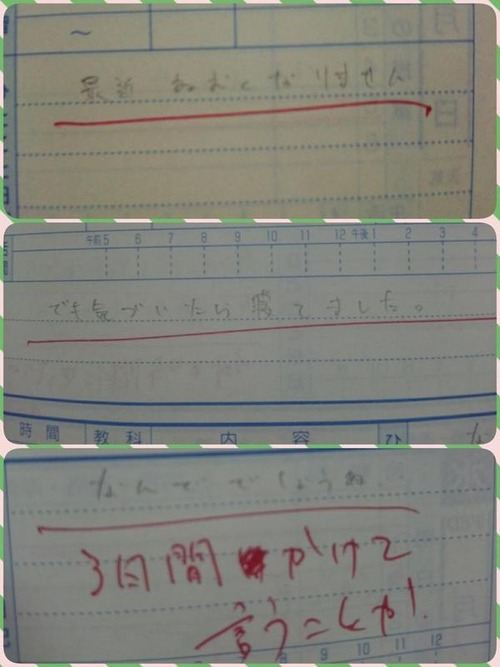 ~
最近 ねむくなりません
午前5 6 7 8 9 10 11 12 午後1 2 3 4
でも気づいたら寝てました。
時間 教科 内容
なんででしょうね.
3日間かけて
言うことか!
9 10 11 12